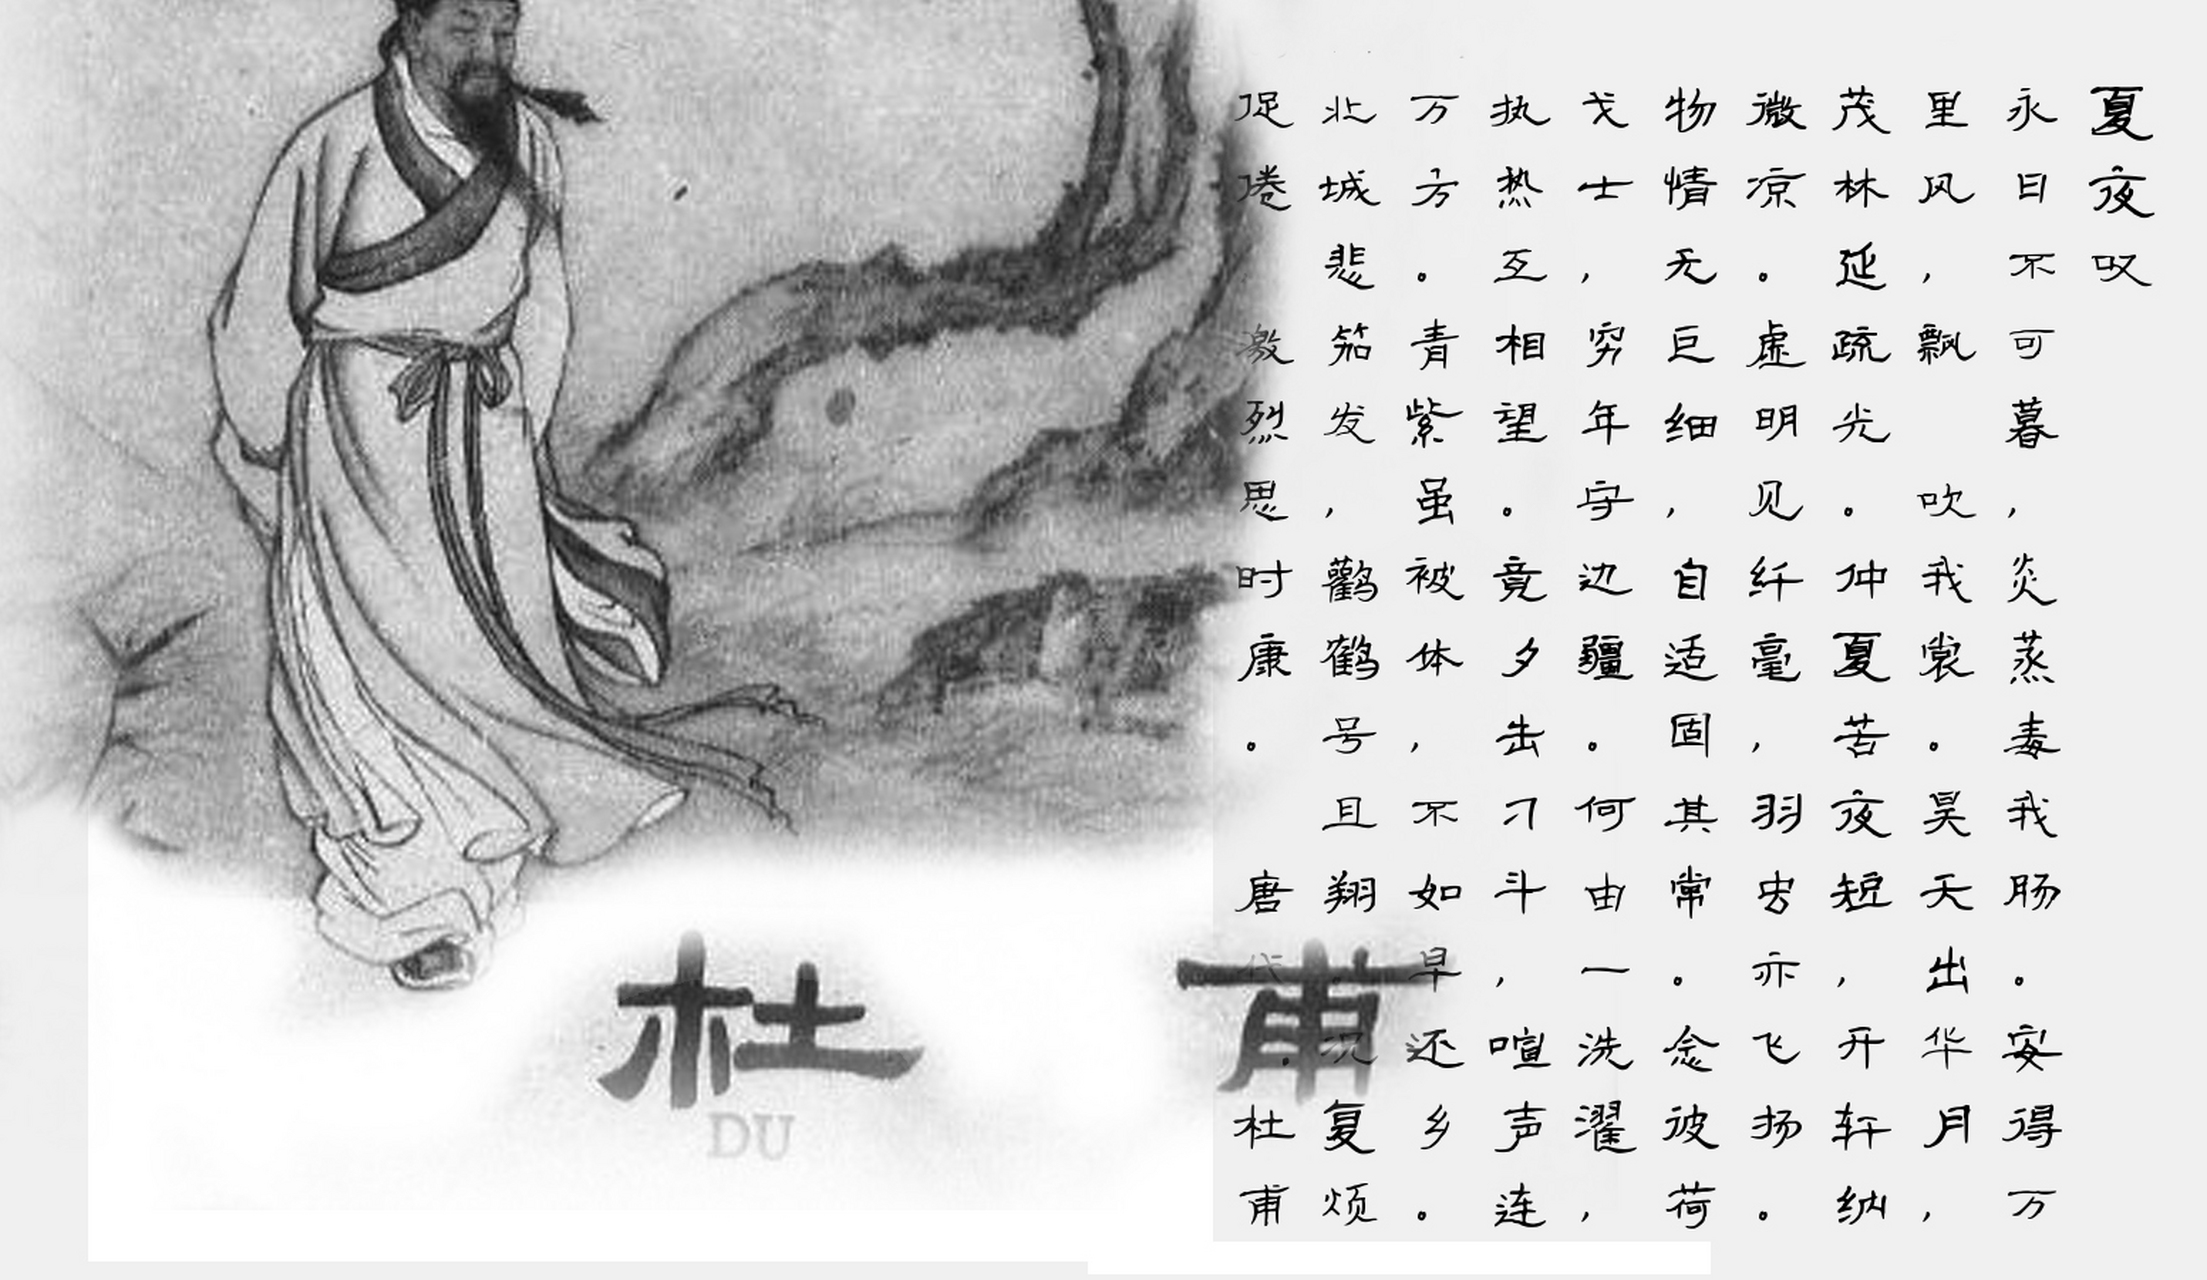 夏夜叹
永日不可暮，炎蒸毒我肠。安得万
里风，飘吹我裳。昊天出华月，
茂林延疏光。仲夏苦夜短，开轩纳
微凉。虚明见纤毫，羽虫亦飞扬。
物情无巨细，自适固其常。念彼荷
戈士，穷年守边疆。何由一洗濯，
执热互相望。竟夕击刁斗，喧声连
万方。青紫虽被体，不如早还乡。
北城悲笳发，鹳鹤号且翔。况复烦
促倦，激烈思时康。唐代·杜甫
杜甫
DU